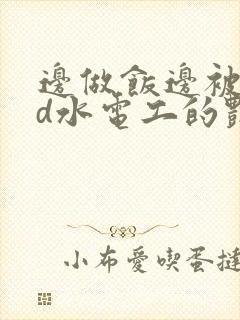 邊做飯邊被
d水電工的豔
小布愛喫蛋撻